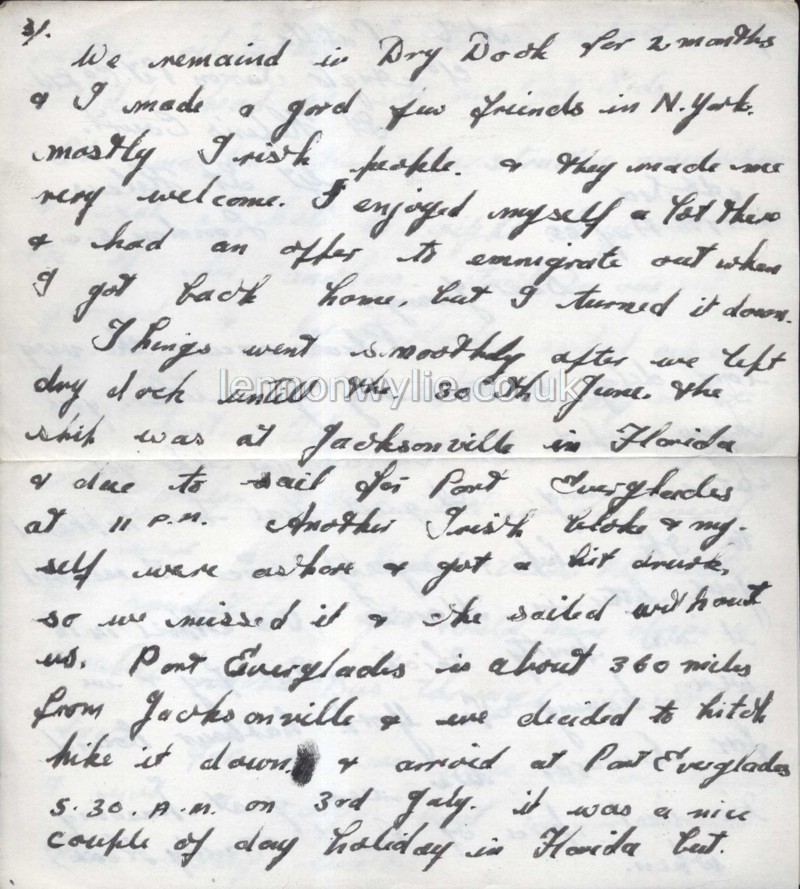 3/.
We remaind in Dry Dock for 2 months
& I made a good few friends in N. York.
mostly Irish people. & they made me
very welcome. I enjoyed myself a lot there
& had an offer to emmigrate out when
I got back home, but I turned it down.
Things went smoothly after we left
dry dock untill the. 30th June. the
ship was at Jacksonville in Florida
& due to sail for Port Everglades
at 11 P.M. Another Irish bloke & my-
self were ashore & got a bit drunk,
so we missed it & she sailed without
us. Port Everglades is about 360 miles
from Jacksonville & we decided to hitch
hike it down. & arrived at Port Everglades
5.30. A.M. on 3rd July. it was a nice
couple of day holiday in Florida but.
lennonwylie.co.uk